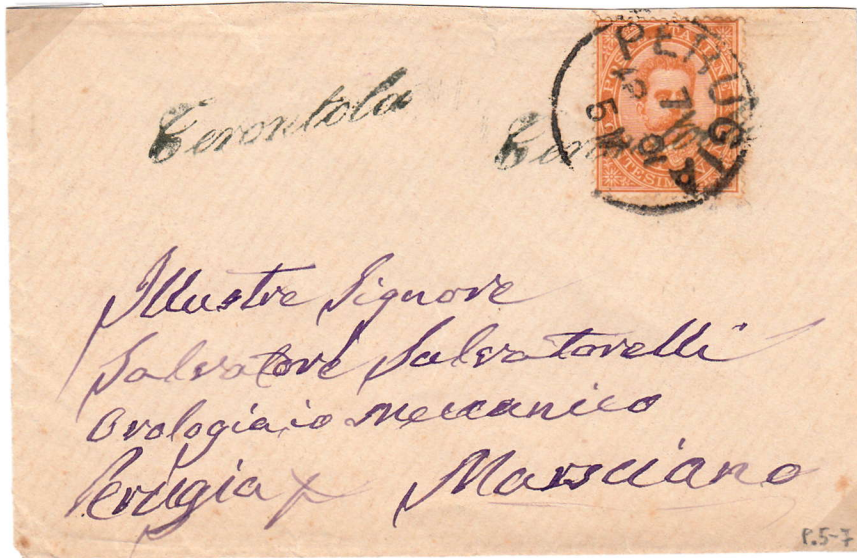 Terontola
PERUGIA
Illustre Signore
Salvatore Salvatorelli
Orologiaio Meccanico
Perugia x Marsciano
P.5-7